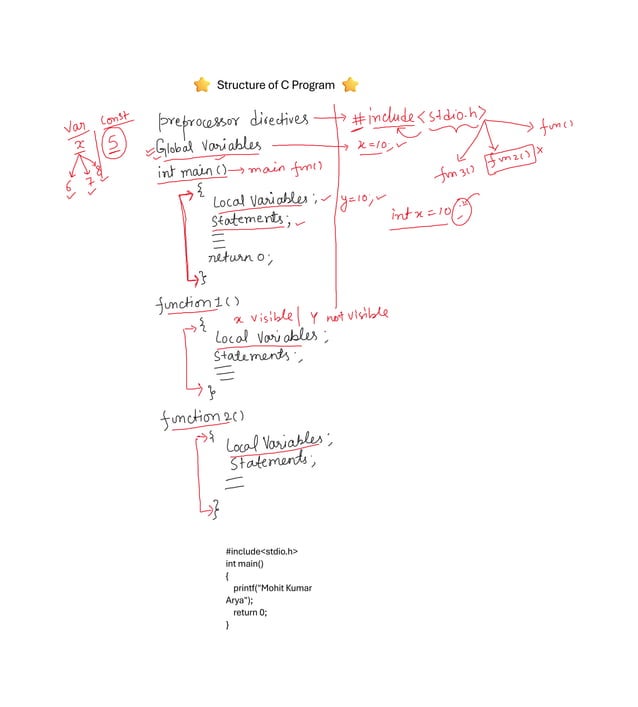 Structure of C Program
Var
x
6 7 8
Const
5
preprocessor directives → #include<stdio.h>
fun()
fun2() x
fun3()
Global Variables → x=10;
int main() → main fun()
{
Local Variables; y=10,
Statements;
int x=10;
return 0;
}
function1()
x visible | y not visible
{
Local Variables;
Statements;
}
function2()
{
Local Variables;
Statements;
}
#include<stdio.h>
int main()
{
printf("Mohit Kumar
Arya");
return 0;
}